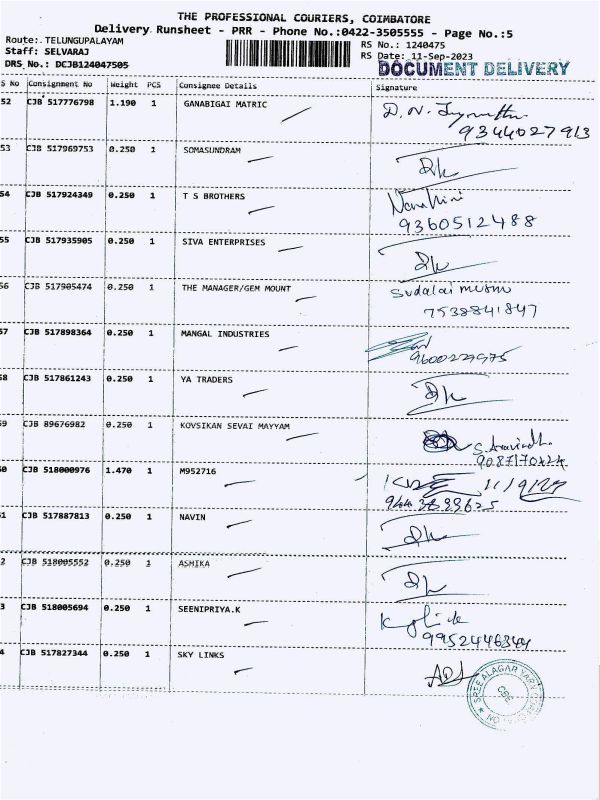 THE PROFESSIONAL COURIERS, COIMBATORE
Delivery Runsheet - PRR - Phone No.:0422-3505555 - Page No.:5
Route: TELUNGUPALAYAM
RS No.: 1240475
Staff: SELVARAJ
RS Date: 11-Sep-2023
DRS No.: DCJB124047505
DOCUMENT DELIVERY
S No Consignment No Weight PCS Consignee Details Signature
52 CJB 517776798 1.190 1 GANABIGAI MATRIC
9344027913
53 CJB 517969753 0.250 1 SOMASUNDRAM
54 CJB 517924349 0.250 1 T S BROTHERS
9360512488
55 CJB 517935905 0.250 1 SIVA ENTERPRISES
56 CJB 517905474 0.250 1 THE MANAGER/GEM MOUNT Sudalai muthu
7538841847
57 CJB 517898364 0.250 1 MANGAL INDUSTRIES
9600227975
58 CJB 517861243 0.250 1 YA TRADERS
59 CJB 89676982 0.250 1 KOVSIKAN SEVAI MAYYAM S. Aravindh
60 CJB 518000976 1.470 1 M952716
61 CJB 517887813 0.250 1 NAVIN
2 CJB 518005552 0.250 1 ASHIKA
3 CJB 518005694 0.250 1 SEENIPRIYA.K
9952446344
4 CJB 517827344 0.250 1 SKY LINKS
SREE ALAGAR
CBE